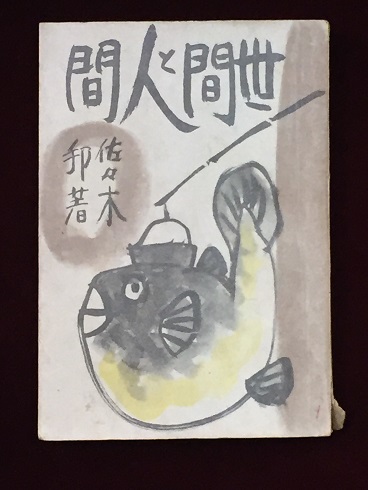 世間と人間
佐々木
邦著